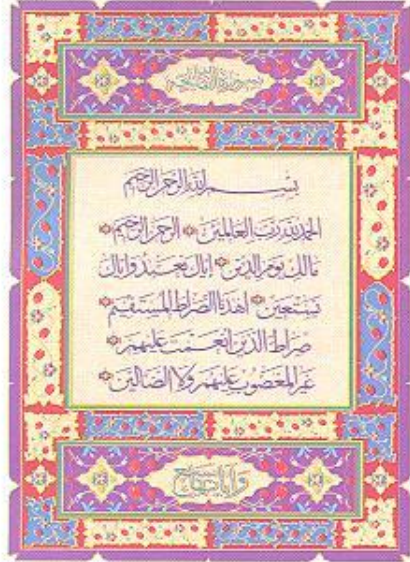 بسم الله الرحمن الرحيم
الحمد لله رب العالمين الرحمن الرحيم
مالك يوم الدين اياك نعبد واياك
نستعين اهدنا الصراط المستقيم
صراط الذين انعمت عليهم
غير المغضوب عليهم ولا الضالين